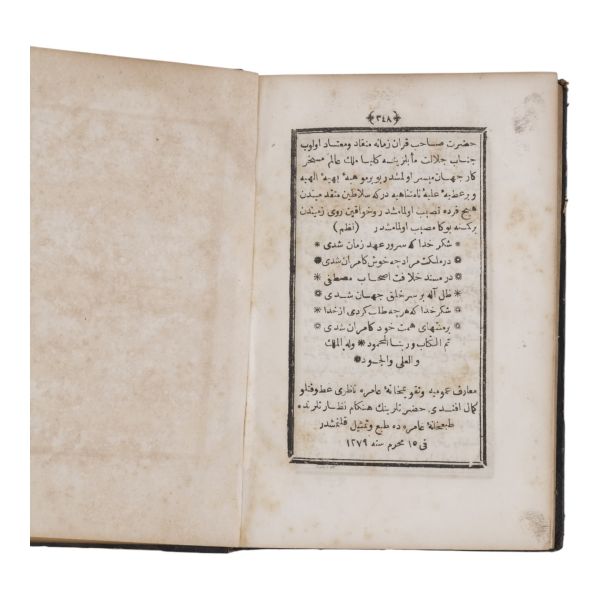 ﴿٣٤٨﴾
حضرت صاحب قران زمانه منقاد و معتاد اولوب
جناب جلالت مآبلرينه كليا ملك عالم مسخر
كار جهان ميسر اولمشدر بو بر موهبهٔ بهيهٔ الهيه
و بر عطيهٔ عليهٔ نامتناهيه در كه سلاطين متقدميندن
هيچ فرده نصيب اولمامشدر و خواقين روى زميندن
بركسنه بوكا مصيب اولمامشدر (نظم)
* شكر خدا كه سرور عهد زمان شدى *
در ملكت مراد چه خوش كامران شدى *
* در مسند خلافت اصحاب مصطفى *
* ظل اله بر سر خلق جهان شدى *
* شكر خدا كه هر چه طلب كردى از خدا *
* بر منتهاى همت خود كامران شدى *
تم الكتاب و ربنا المحمود * وله الملك
والعلى والجود *
معارف عموميه و تقويمخانهٔ عامره ناظرى عطوفتلو
كمال افندى حضرتلرينك هنكام نظارتلرنده
طبعخانهٔ عامره ده طبع و تمثيل قلنمشدر
فى ١٥ محرم سنه ١٢٧٩